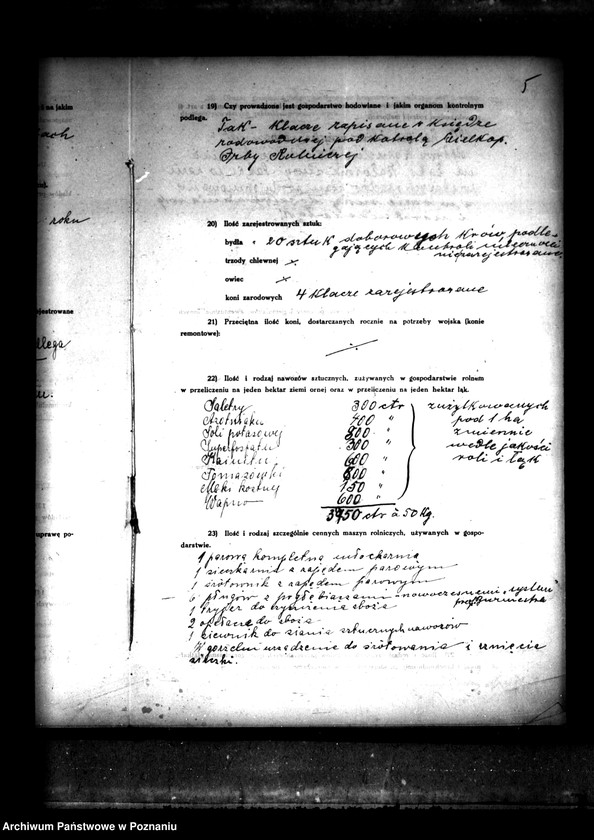 5
19) Czy prowadzone jest gospodarstwo hodowlane i jakim organom kontrolnym
podlega.
Tak - Klacze zapisane w księdze
rodowodowej pod kontrolą Wielkop.
Izby Rolniczej
20) Ilość zarejestrowanych sztuk:
bydła 20 sztuk doborowych krów podle-
gających kontroli mleczności
niezarejestrowane
trzody chlewnej
owiec
koni zarodowych 4 Klacze zarejestrowane
21) Przeciętna ilość koni, dostarczanych rocznie na potrzeby wojska (konie
remontowe):
22) Ilość i rodzaj nawozów sztucznych, zużywanych w gospodarstwie rolnem
w przeliczeniu na jeden hektar ziemi ornej oraz w przeliczeniu na jeden hektar łąk.
Saletry 300 ctr zużytkowanych
Azotniaku 400 " pod 1 ha
Soli potasowej 800 " zmiennie
Superfosfatu 300 " wedle jakości
Kainitu 600 " roli i łąk
Tomasówki 800 "
Mąki kostnej 150 "
Wapno 600 "
3950 ctr à 50 Kg.
23) Ilość i rodzaj szczególnie cennych maszyn rolniczych, używanych w gospo-
darstwie.
1 parową kompletną młocarnią
1 sieczkarnia z napędem parowym
1 śrótownik z napędem parowym
6 pługów z pogłębiaczami nowoczesnemi systemu
1 tryjer do czyszczenia zboża
2 do zboża
1 siewnik do siania sztucznych nawozów
W gorzelni urządzenie do śrótowania i
na jakim
roku
ejestrowane
uprawę po-
Archiwum Państwowe w Poznaniu
Archiwum Państwowe w Poznaniu